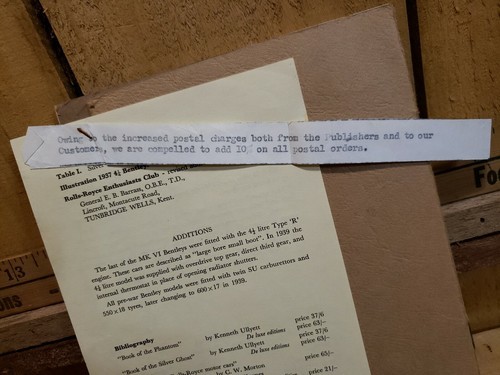 Owing to the increased postal charges both from the Publishers and to our
Customers, we are compelled to add 10% on all postal orders.
Table I. Silver
Illustration 1937 4¼ Bentley
Rolls-Royce Enthusiasts Club - revised
General E. B. Barrass, O.B.E., T.D.,
Lincroft, Montacute Road,
TUNBRIDGE WELLS, Kent.
ADDITIONS
The last of the MK VI Bentleys were fitted with the 4½ litre Type 'R'
engine. These cars are described as "large bore small boot". In 1939 the
4¼ litre model was supplied with overdrive top gear, direct third gear, and
internal thermostat in place of opening radiator shutters.
All pre-war Bentley models were fitted with twin SU carburettors and
550 × 18 tyres, later changing to 600 × 17 in 1939.
Bibliography
"Book of the Phantoms" by Kenneth Ullyett price 37/6
De luxe editions price 63/-
"Book of the Silver Ghost" by Kenneth Ullyett price 37/6
De luxe editions price 63/-
-Royce motor cars" by C. W. Morton price 65/-
price 21/-
Foo
13
ons